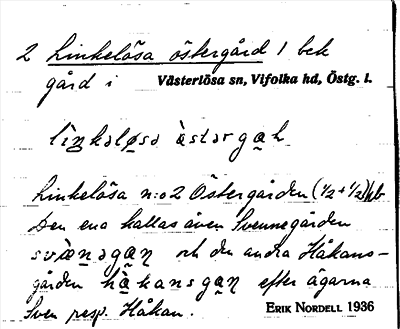 2 Linkelösa östergård 1 bek
gård i Västerlösa sn, Vifolka hd, Östg. l.
Linkelösa n:o 2 Östergården (1/2 + 1/2)
Den ena kallas även Svennegården
och den andra Håkans-
gården efter ägarna
Sven resp. Håkan. ERIK NORDELL 1936